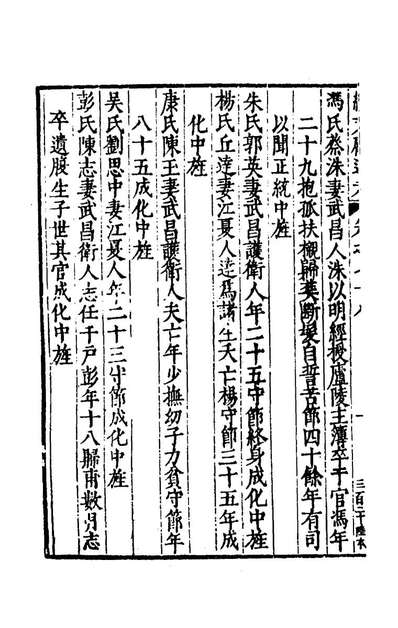 馮氏蔡洙妻武昌人洙以明經授廬陵主簿卒于官馮年
二十九抱孤扶櫬歸葬斷髮自誓苦節四十餘年有司
以聞正統中旌
朱氏郭英妻武昌護衛人年二十五守節終身成化中旌
楊氏丘達妻江夏人達爲諸生夭亡楊守節三十五年成
化中旌
康氏陳王妻武昌護衛人夫亡年少撫幼子力貧守節年
八十五成化中旌
吳氏劉思中妻江夏人年二十三守節成化中旌
彭氏陳志妻武昌衛人志任千戶彭年十八歸甫數月志
卒遺腹生子世其官成化中旌